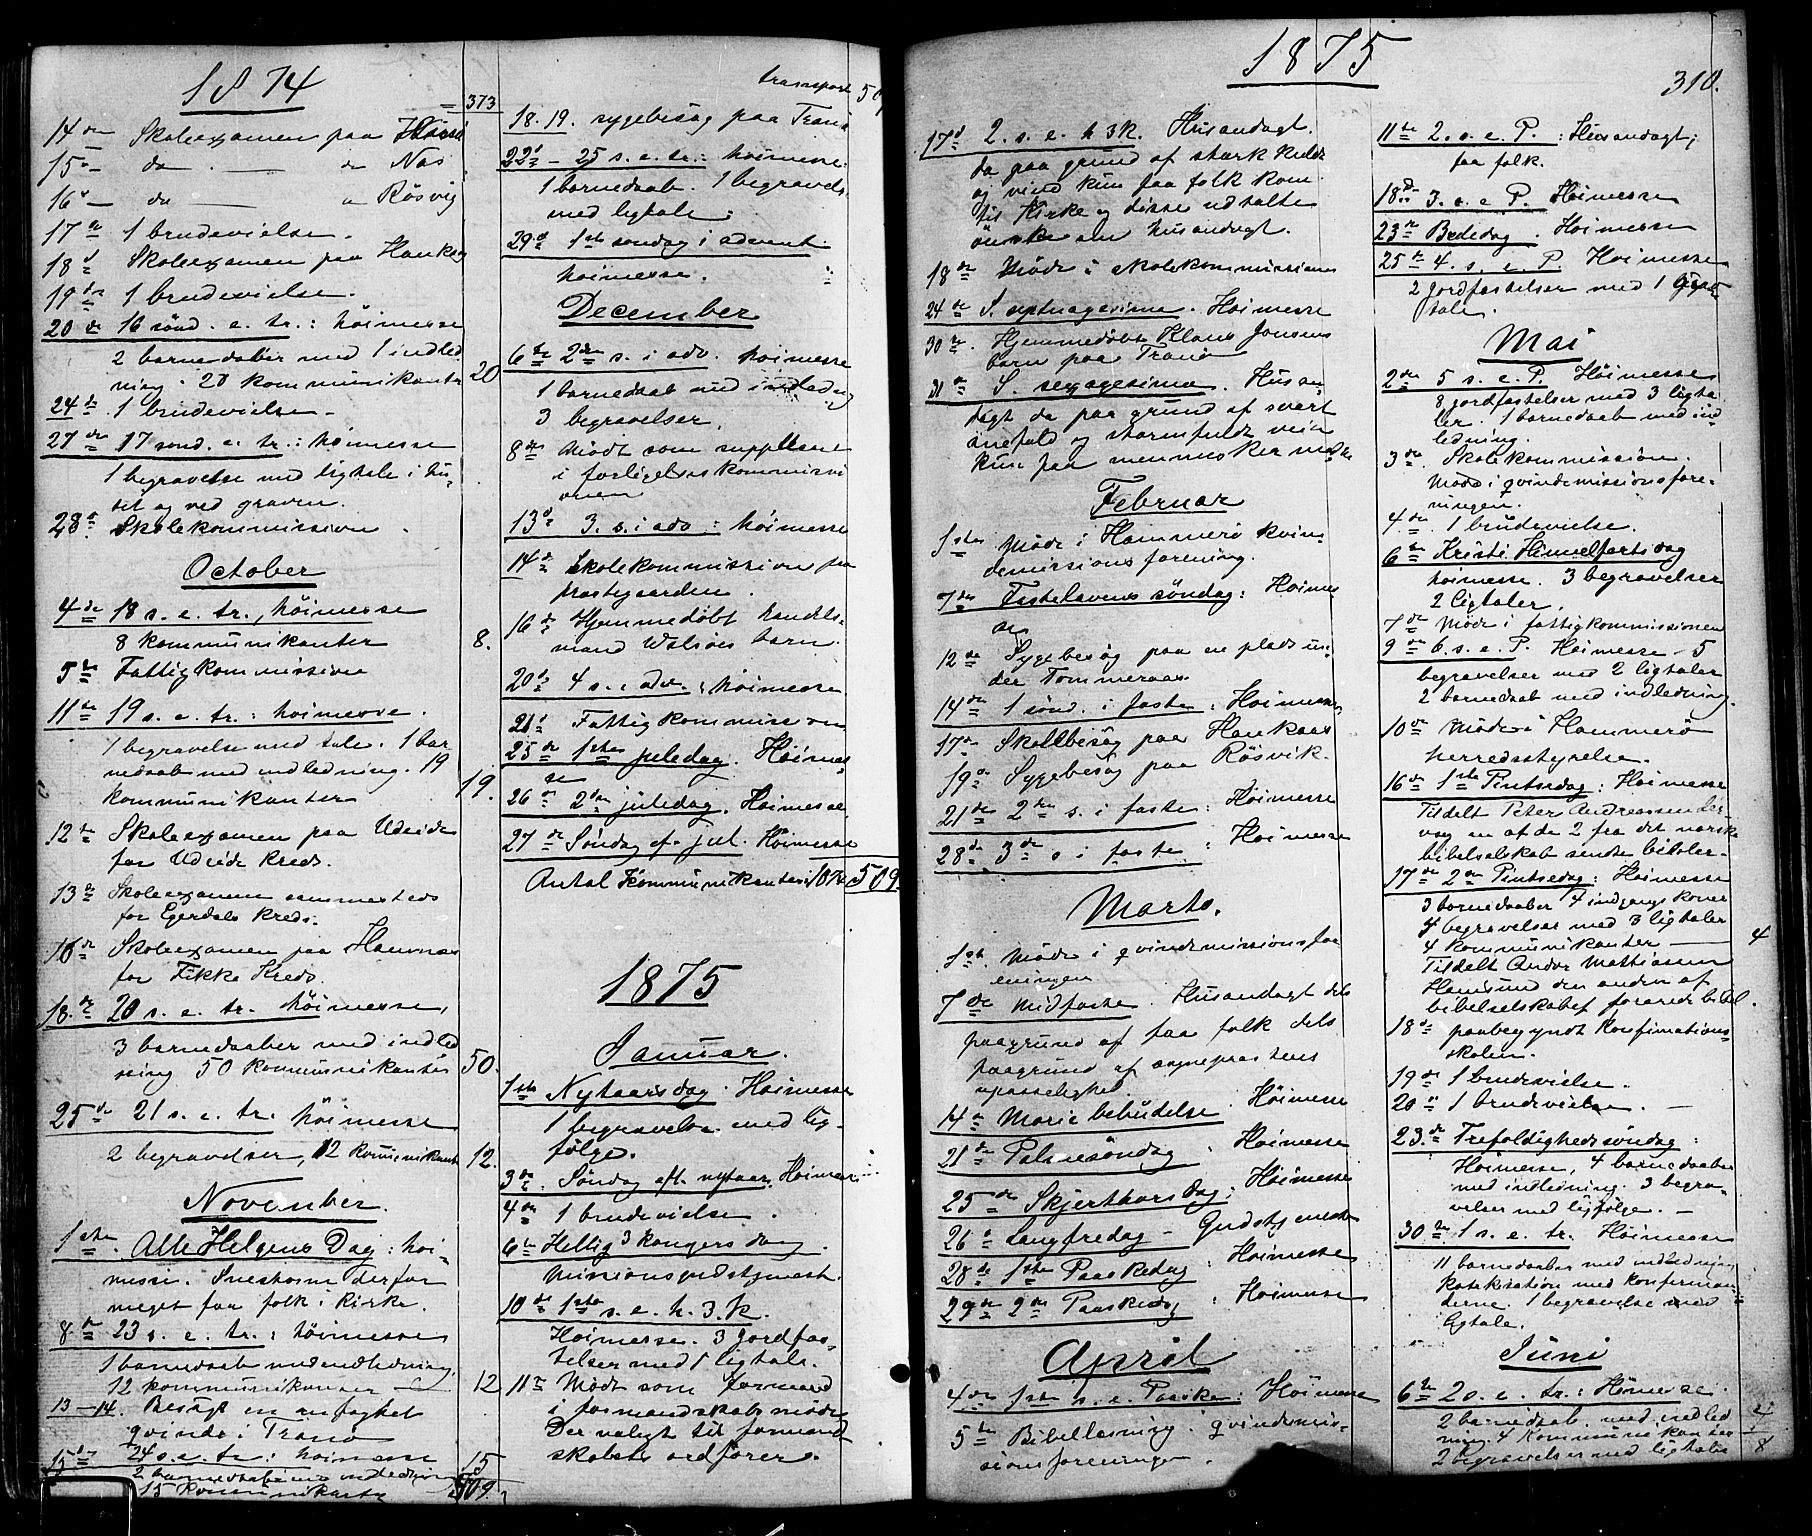 1874
= 373
14de Skoleexamen paa
15 — do . — do Nes
16 — do — o Rösvig
17de 1 brudevielse.
18d Skoleexamen paa Hankaas
19de 1 brudevielse.
20de 16 sönd. e. tr.: höimesse
2 barnedaber med 1 indled
ning. 20 kommunikanter 20
24de 1 brudevielse.
27de 17 sönd. e. tr.: höimesse
1 begravelse med ligtale i hu-
set og ved graven.
28de Skolekommission
October
4de 18 s. e. tr., höimesse
8 kommunikanter 8.
5te Fattigkommission
11te 19 s. e. tr.: höimesse.
1 begravelse med tale. 1 bar
nedaab med indledning. 19
kommunikanter 19.
12te Skoleexamen paa Udeide
for Udeide Kreds.
13de Skoleexamen sammesteds
for Egerdals Kreds.
16de Skoleexamen paa
for Fikke Kreds.
18de 20 s. e. tr. höimesse,
3 barnedaaber med indled
ning 50 kommunikanter 50.
25de 21 s. e. tr. höimesse
2 begravelser, 12 kommunikant 12.
November
1ste. Alle Helgens Dag: höi-
messe. Snestorm derfor
meget faa folk i kirke.
8de 23 s. e. tr.: höimesse
1 barnedaab med indledning,
12 kommunikanter — 12
13-14. Besögt en
qvinde i Tranö
15de 24 s. e. tr: höimesse
2 barnedaab med indledning
15 kommunikanter 15
509.
transport 509
18.19. sygebesög paa Tranö
22de - 25 s. e. tr.: höimesse
1 barnedaab. 1 begravels
med ligtale.
29de 1ste söndag i advent
höimesse.
December
6te 2den s. i adv. höimesse
1 barnedaab med indledning
3 begravelser.
8de Mödt som suppleant
i forligelseskommissi
onen
13de 3. s. i adv: höimesse
14de Skolekommission paa
prestegaarden.
16de Hjemmedöbt handels-
mand Walsöes barn.
20de 4 s. i adv.: höimesse
21de Fattigkommission
25de 1ste juledag. Höimes-
se
26de 2den juledag. Höimesse
27de Söndag ef. jul. Höimesse
Antal Kommunikanter i 1874 509
1875
Januar.
1ste Nytaarsdag. Höimesse
1 begravelse med lig-
fölge.
3de. Söndag eft. nytaar. Höimesse
4de 1 brudevielse.
6te Hellig 3 kongers dag.
Missionsgudstjeneste.
10de 1ste s. e. h. 3. k.
Höimesse. 3 jordfæs-
telser med 1 ligtale.
11te Mödt som formand
i formandskabsmöde
Der valgt til formand
skabets ordförer.
1875
310.
17d 2. s. e. h 3K. Husandagt.
da paa grund af stærk kulde
og vind kun faa folk kom
til Kirke og disse udtalte
önske om husandagt.
18de Möde i skolekommissionen
24de S. septuagesima. Höimesse
30te. Hjemmedöbt Klaus Jensens
barn paa Tranö
31te S. sexagesima. Husan-
dagt da paa grund af svært
snefald og stormfuldt veir
kun faa mennesker mödte
Februar
1ste Möde i Hammerö kvin-
demissionsforening.
7de Fastelavens söndag: Höimes
se
12te Sygebesög paa en plads un-
der Tommeraas.
14de 1 sönd. i faste: Höimesse,
17de Skolebesög paa Hankaas
19de Sygebesög paa Rösvik.
21de 2den s. i faste: Höimesse
28de 3de s. i faste: Höimesse
Marts.
1ste. Möde i qvindemissionsfor
eningen
7de Midfaste. Husandagt dels
paagrund af faa folk dels
paagrund af sognepræstens
upasselighed
14de Marie bebudelse. Höimesse
21de Palmesöndag. Höimesse
25de Skjærthorsdag: Höimesse
26de Langfredag - Gudstjeneste
28de 1ste Paaskedag. Höimesse
29de 2de Paaskedag: Höimesse
April
4de 1ste s. e. Paaske: Höimesse
5te Bibellæsning i qvindemis-
sionsforeningen.
11te 2. s. e. P.: Husandagt;
faa folk.
18de 3. s. e P. Höimesse
23de Bededag. Höimesse
25de 4. s. e. P. Höimesse
2 jordfæstelser med 1 lig-
tale.
Mai
2den 5 s. e. P. Höimesse
8 jordfæstelser med 3 ligta-
ler. 1 barnedaab med ind
ledning.
3de. Skolekommission.
Möde i qvindemissionsfore-
ningen.
4de 1 brudevielse.
6te Kristi Himmelfartsdag
höimesse. 3 begravelser
2 ligtaler.
7de Möde i fattigkommissionen
9de 6. s. e. P. Höimesse - 5
begravelser med 2 ligtaler
2 barnedaab med indledning.
10de Möde i Hammerö
herredsstyrelse.
16de 1ste Pintsedag: Höimesse
Tildelt Peter Andreassen Ler-
vag en af de 2 fra det norske
bibelselskab sendte bibler.
17de 2den Pintsedag: Höimesse
3 barnedaaber 4 indgangskoner
4 begravelser med 3 ligtaler
4 kommunikanter — 4
Tildelt Andor Mathiasen
Hamsund den anden af
bibelselskabet forærede bibel.
18de paabegyndt Konfirmations-
skolen.
19de 1 brudevielse.
20de 1 brudevielse.
23de Trefoldighedssöndag:
Höimesse, 4 barnedaaber
med indledning. 3 begra-
velser med ligfölge.
30te 1 s. e. tr. Höimesse
11 barnedaaber med indledning
Katekisation med konfirman-
derne. 1 begravelse med
ligtale.
Juni
6te 2 s. e. tr.: Höimesse.
2 barnedaab. med indled
ning. 4 Kommunikanter 4
2 Begravelser med ligtale 8